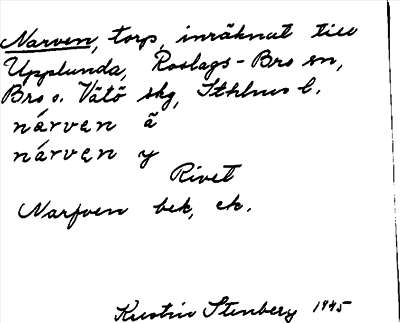 Narven, torp, inräknat till
Upplunda, Roslags-Bro sn,
Bro o. Vätö skg, Sthlms l.
nárven ä
nárven y
Rivet
Narfven bek, ek.
Kerstin Stenberg 1945